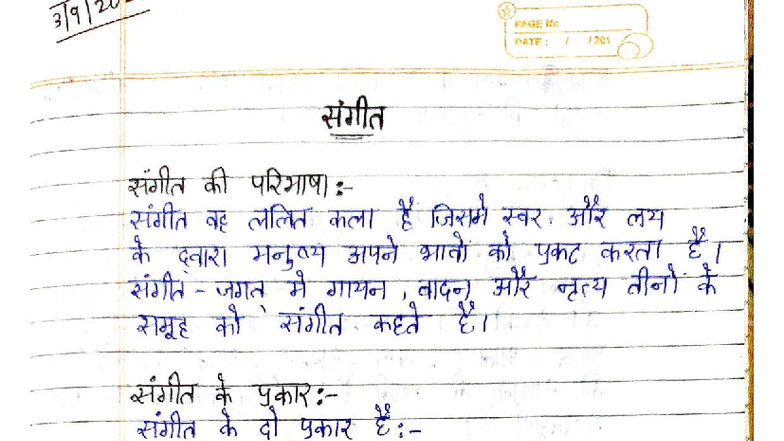 3/9/20
PAGE No
DATE: / /201
संगीत
संगीत की परिभाषा:-
संगीत वह ललित कला है जिसमे स्वर और लय
के द्वारा मनुष्य अपने भावो को प्रकट करता है।
संगीत - जगत मे गायन, वादन और नृत्य तीनो के
समूह को संगीत कहते है।
संगीत के प्रकार:-
संगीत के दो प्रकार है:-